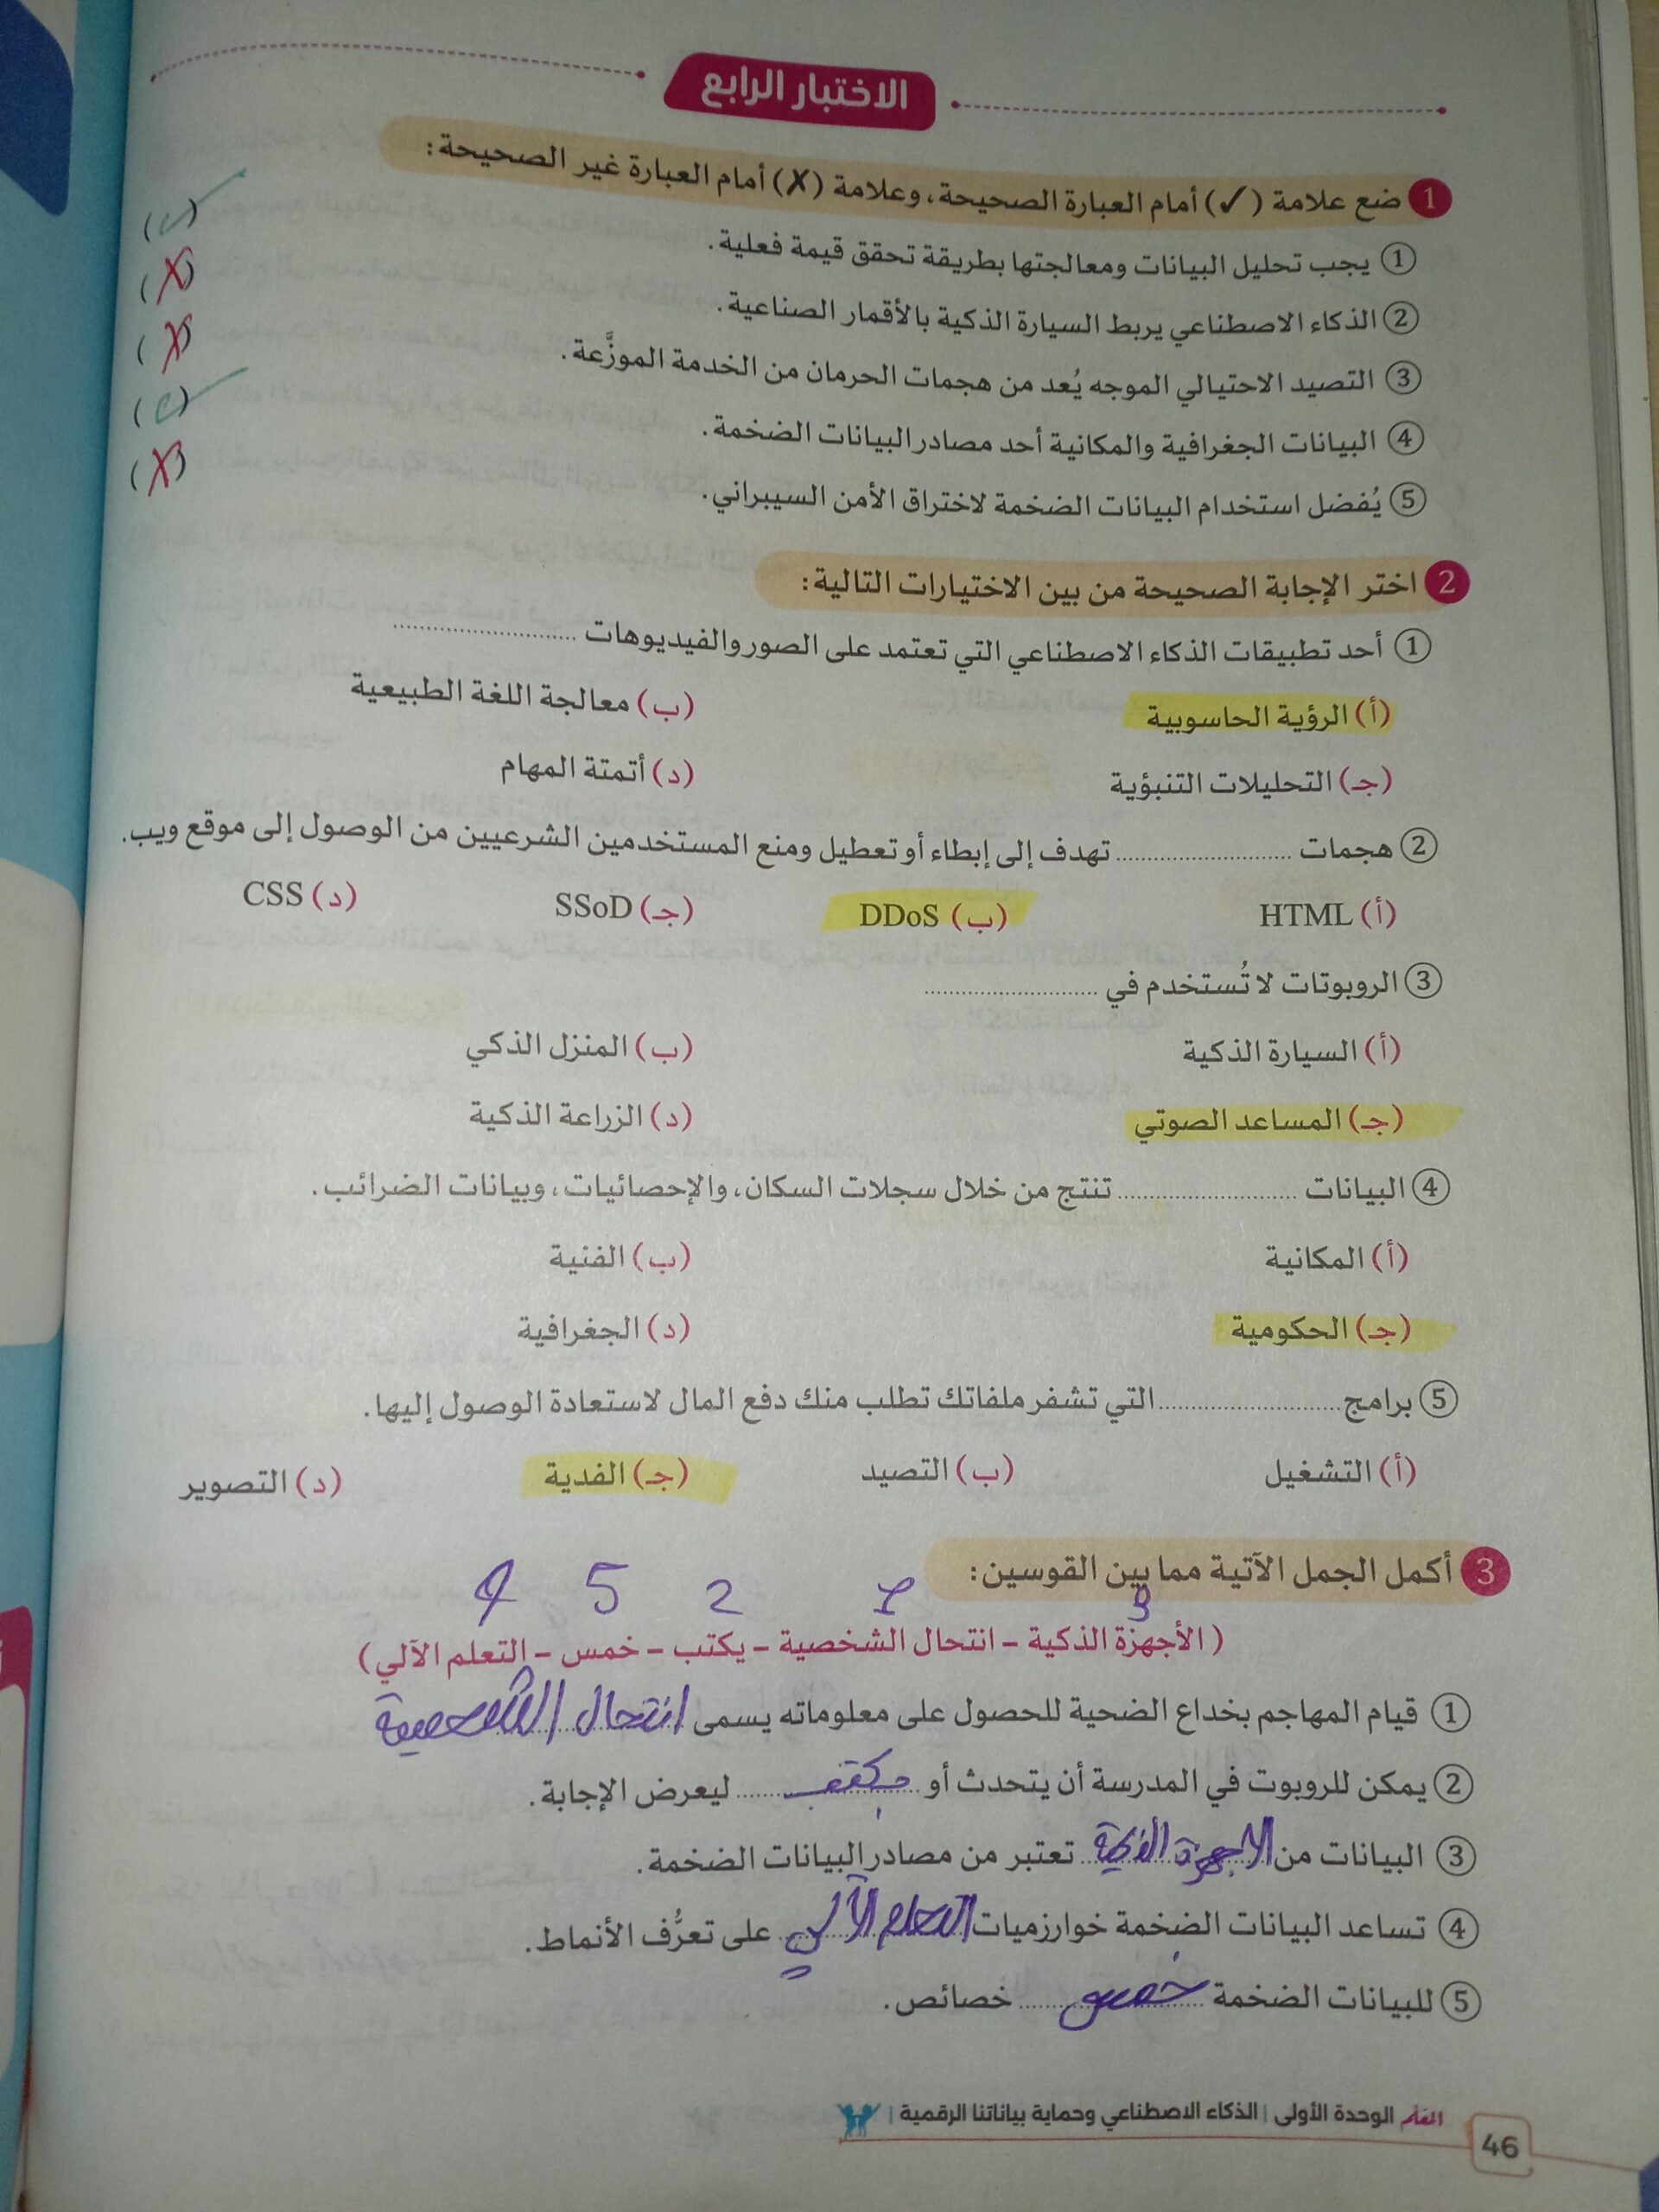 الاختبار الرابع
1 ضع علامة (✓) أمام العبارة الصحيحة، وعلامة (✗) أمام العبارة غير الصحيحة:
① يجب تحليل البيانات ومعالجتها بطريقة تحقق قيمة فعلية. (✓)
② الذكاء الاصطناعي يربط السيارة الذكية بالأقمار الصناعية. (✗)
③ التصيد الاحتيالي الموجه يُعد من هجمات الحرمان من الخدمة الموزَّعة. (✗)
④ البيانات الجغرافية والمكانية أحد مصادر البيانات الضخمة. (✓)
⑤ يُفضل استخدام البيانات الضخمة لاختراق الأمن السيبراني. (✗)
2 اختر الإجابة الصحيحة من بين الاختيارات التالية:
① أحد تطبيقات الذكاء الاصطناعي التي تعتمد على الصور والفيديوهات ..........................
(أ) الرؤية الحاسوبية (ب) معالجة اللغة الطبيعية
(جـ) التحليلات التنبؤية (د) أتمتة المهام
② هجمات .......................... تهدف إلى إبطاء أو تعطيل ومنع المستخدمين الشرعيين من الوصول إلى موقع ويب.
(أ) HTML (ب) DDoS (جـ) SSoD (د) CSS
③ الروبوتات لا تُستخدم في ..........................
(أ) السيارة الذكية (ب) المنزل الذكي
(جـ) المساعد الصوتي (د) الزراعة الذكية
④ البيانات .......................... تنتج من خلال سجلات السكان، والإحصائيات، وبيانات الضرائب.
(أ) المكانية (ب) الفنية
(جـ) الحكومية (د) الجغرافية
⑤ برامج .......................... التي تشفر ملفاتك تطلب منك دفع المال لاستعادة الوصول إليها.
(أ) التشغيل (ب) التصيد (جـ) الفدية (د) التصوير
3 أكمل الجمل الآتية مما بين القوسين:
3 1 2 5 4
(الأجهزة الذكية – انتحال الشخصية – يكتب – خمس – التعلم الآلي)
① قيام المهاجم بخداع الضحية للحصول على معلوماته يسمى انتحال الشخصية
② يمكن للروبوت في المدرسة أن يتحدث أو يكتب ليعرض الإجابة.
③ البيانات من الأجهزة الذكية تعتبر من مصادر البيانات الضخمة.
④ تساعد البيانات الضخمة خوارزميات التعلم الآلي على تعرُّف الأنماط.
⑤ للبيانات الضخمة خمس خصائص.
المعلم الوحدة الأولى | الذكاء الاصطناعي وحماية بياناتنا الرقمية |
46